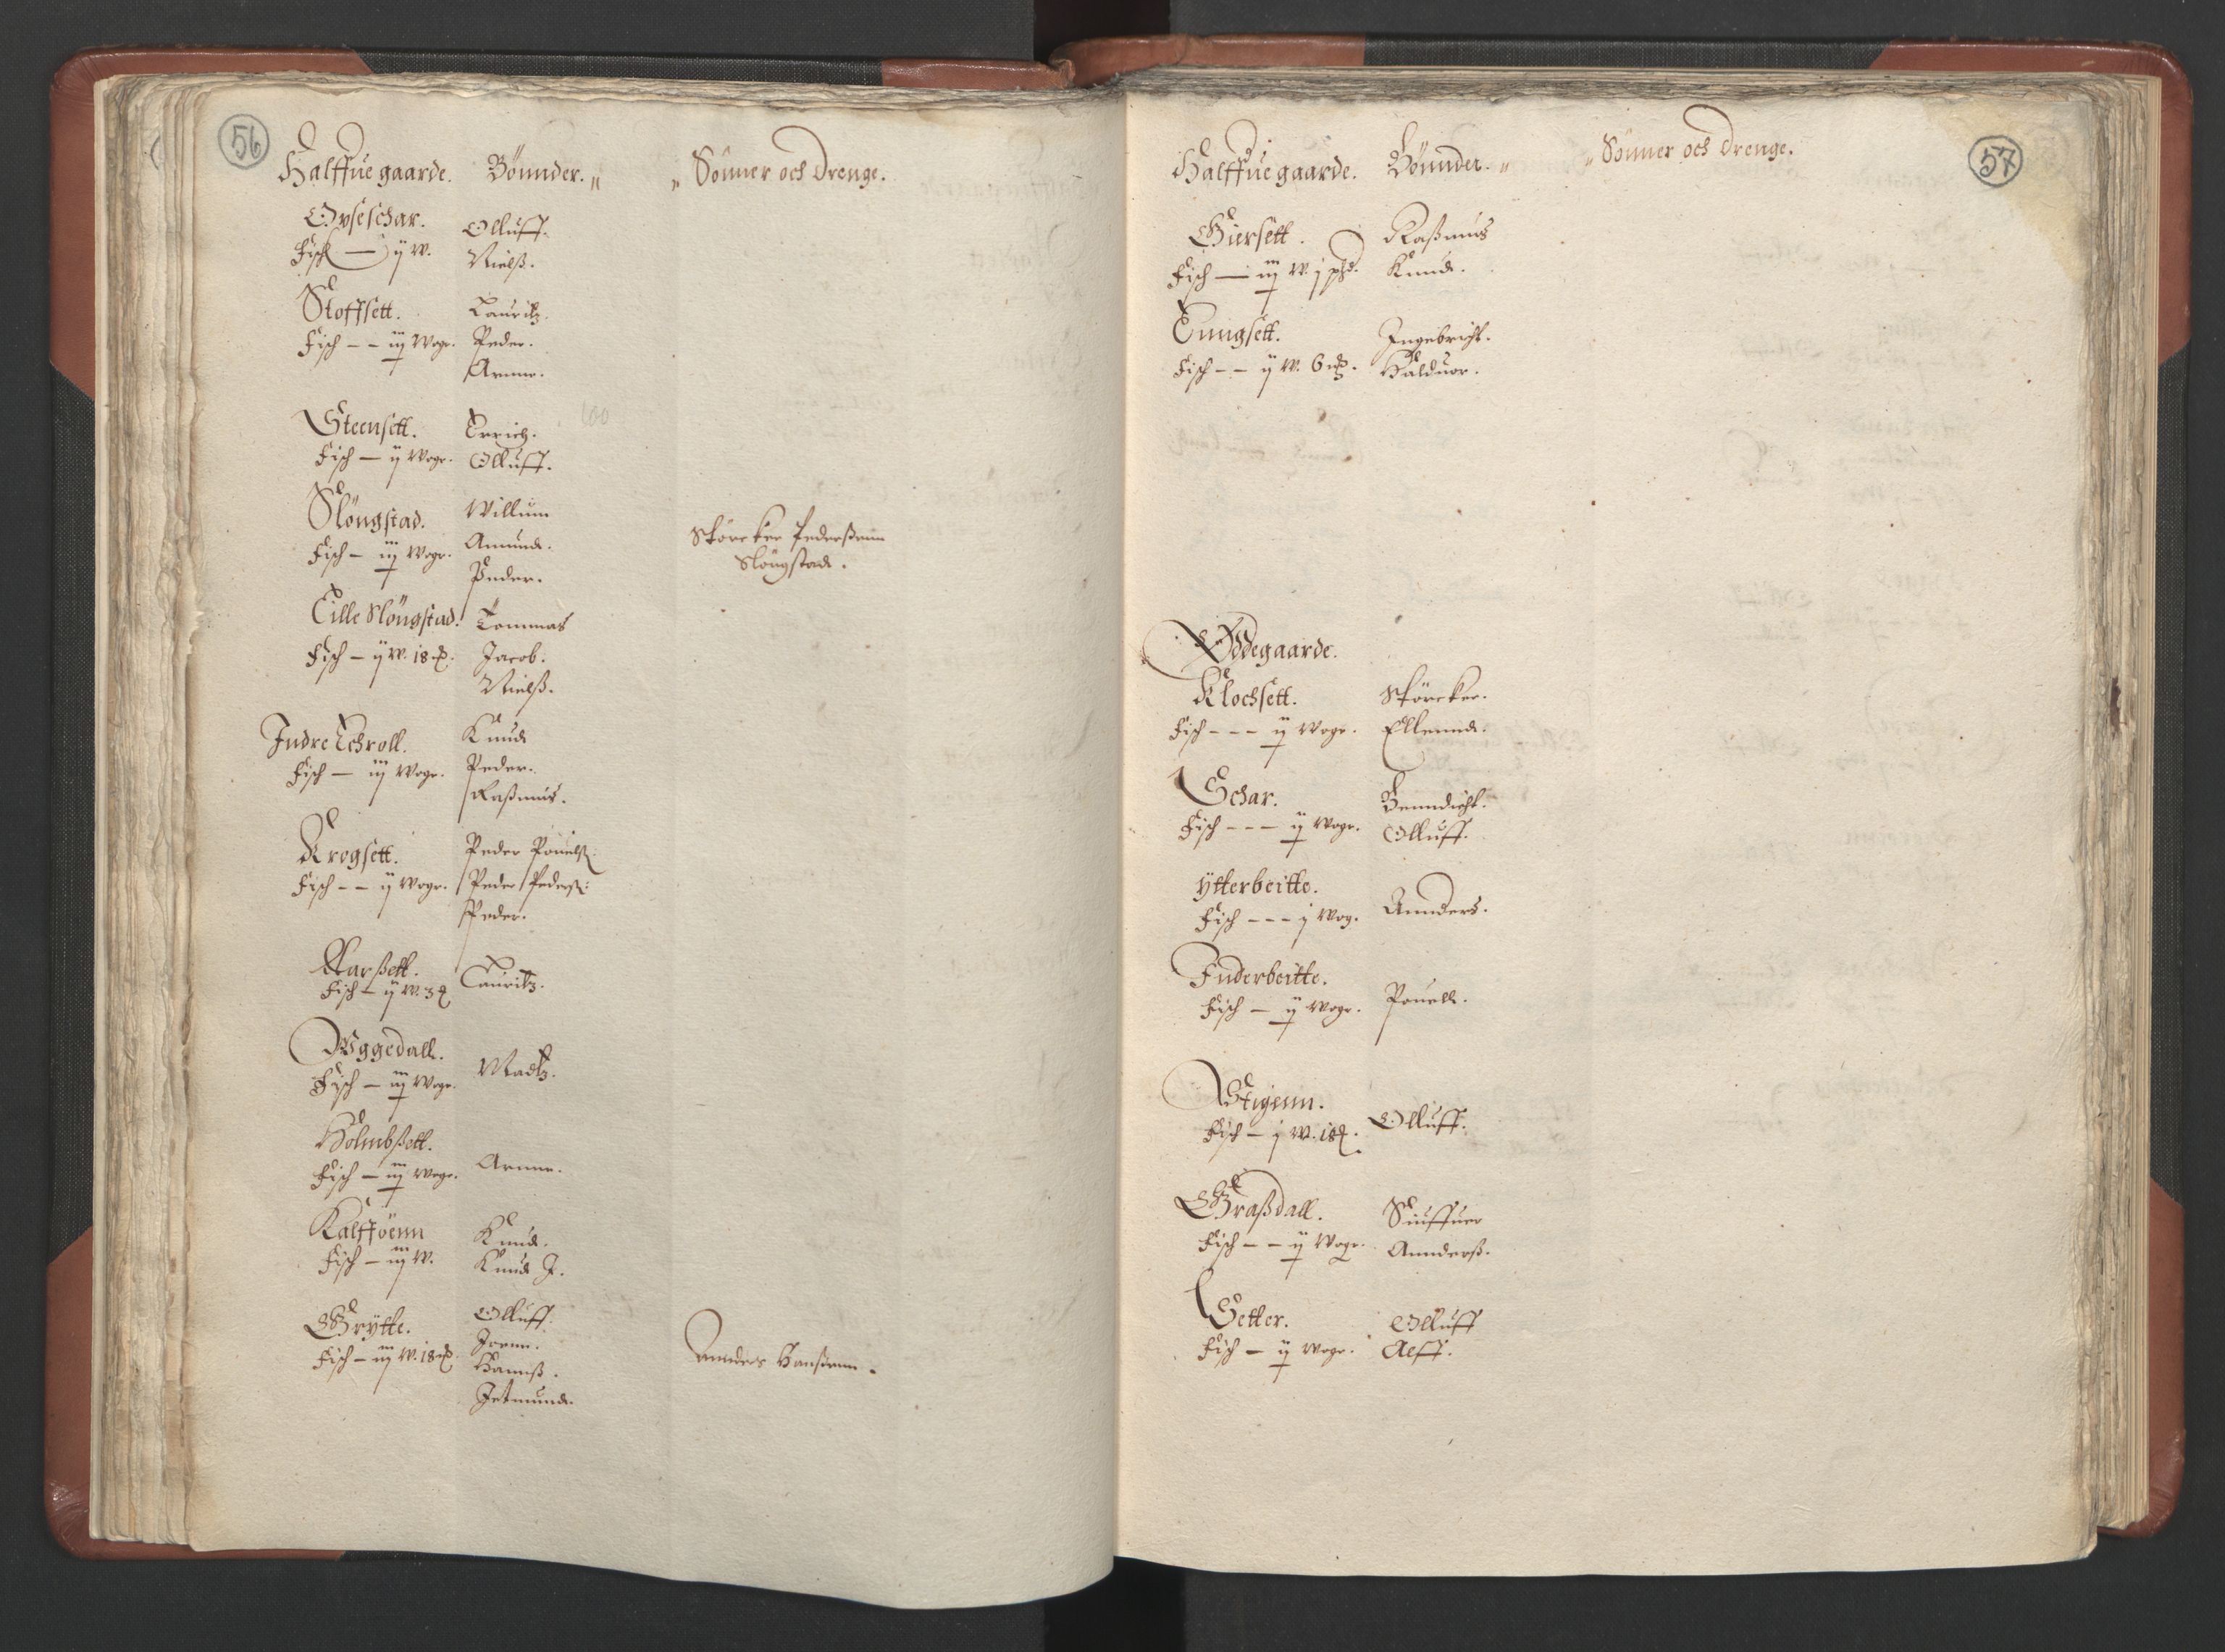 56
Halffue gaarde. Bönnder. „ „ Sönner och Drenge.
Ovseschar. Olluff.
Fisch — ij W. Nielß.
Stoffsett. Lauritz.
Fisch - - iij Woge. Peder.
Arnne.
Steensett. Errich.
Fisch — ij Woge. Olluff.
Slöngstad. Willum
Fisch - iij Woge. Amund.
Peder.
Störcker Pederßenn
Slöngstad.
Lille Slöngstad. Tommas
Fisch - ij W. 18 Jacob.
Nielß.
Indre Schroll. Knud
Fisch — iij Woge. Peder.
Raßmus.
Krogsett. Peder Pouelß:
Fisch - - ij Woge. Peder Pederß:
Peder.
Aarßett. Lauritz.
Fisch - ij W. 3
Wggedall. Madtz.
Fisch - iij Woge.
Holmbßett. Arnne.
Fisch - iij Woge.
Kalfföenn Knud.
Fisch - iij W. Knud J.
Grytte. Olluff.
Fisch - iij W. 18 Joenn.
Hannß.
Jetmund.
Annders Hanßenn.
57
Halffue gaarde. Bönnder. „ „ Sönner och Drenge.
Giersett. Raßmus
Fisch — iij W. j pd. Knud.
Tungsett. Ingebricht.
Fisch - - ij W. 6 Halduor.
Ödegaarde.
Klochsett. Störcker.
Fisch - - - ij Woge. Ellennd.
Schar. Benndicht.
Fisch - - - ij Woge. Olluff.
ytterbeitte. Annders.
Fisch - - - j Wog.
Inderbeitte. Pouell.
Fisch — ij Woge.
Stigenn. Olluff.
Fisch — j W. 18
Graßdall. Siuffuer
Fisch - - ij Woge. Annderß.
Setter. Olluff
Fisch - ij Woge. Aeff.